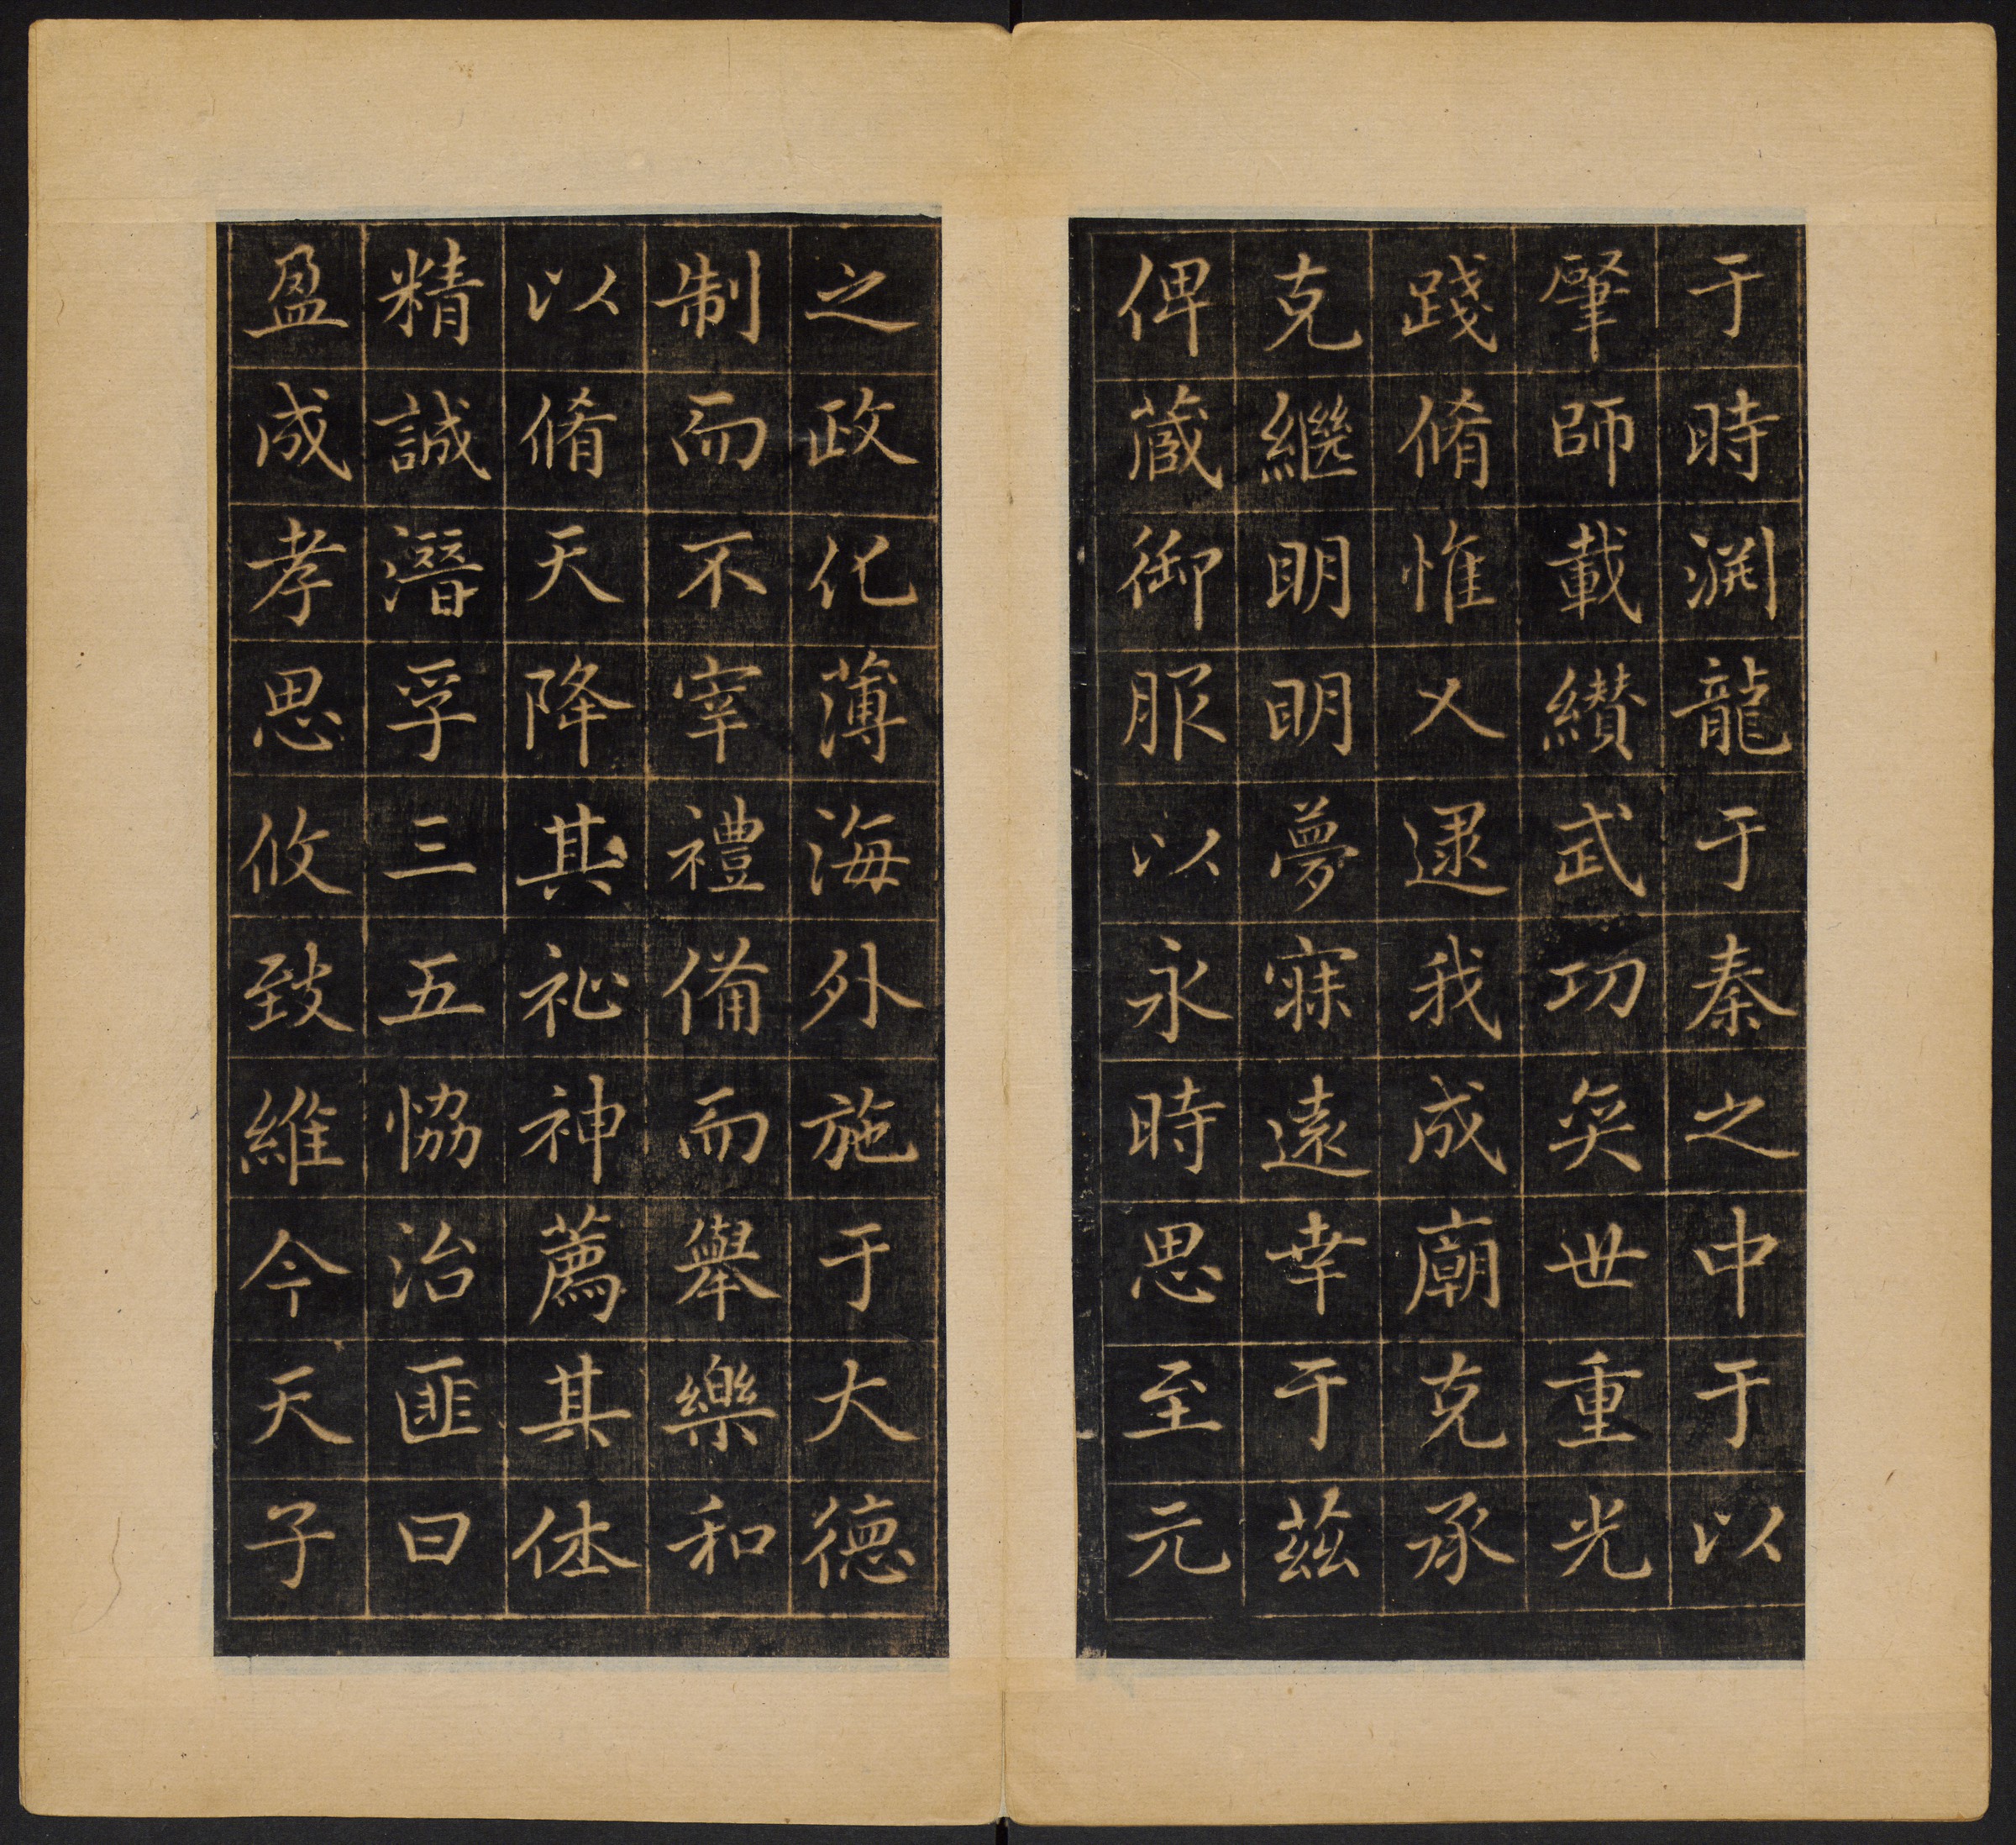 于時渊龍于秦之中于以
肇師載纘武功奕世重光
踐脩惟乂逮我成廟克承
克繼明明夢寐遠幸于茲
俾蔵御服以永時思至元
之政化薄海外施于大德
制而不宰禮備而舉樂和
以脩天降其祉神薦其休
精誠潛孚三五恊治匪曰
盈成孝思攸致維今天子